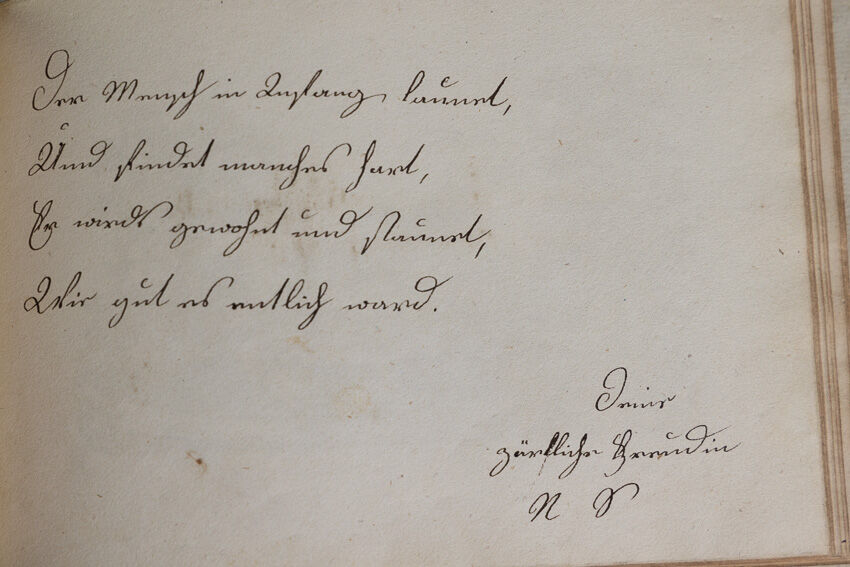 Der Mensch in Anfang launet,
Und findet manches hart,
Er wirds gewohnt und staunet,
Wie gut es entlich ward.
Deine
zärtliche Freundin
N S